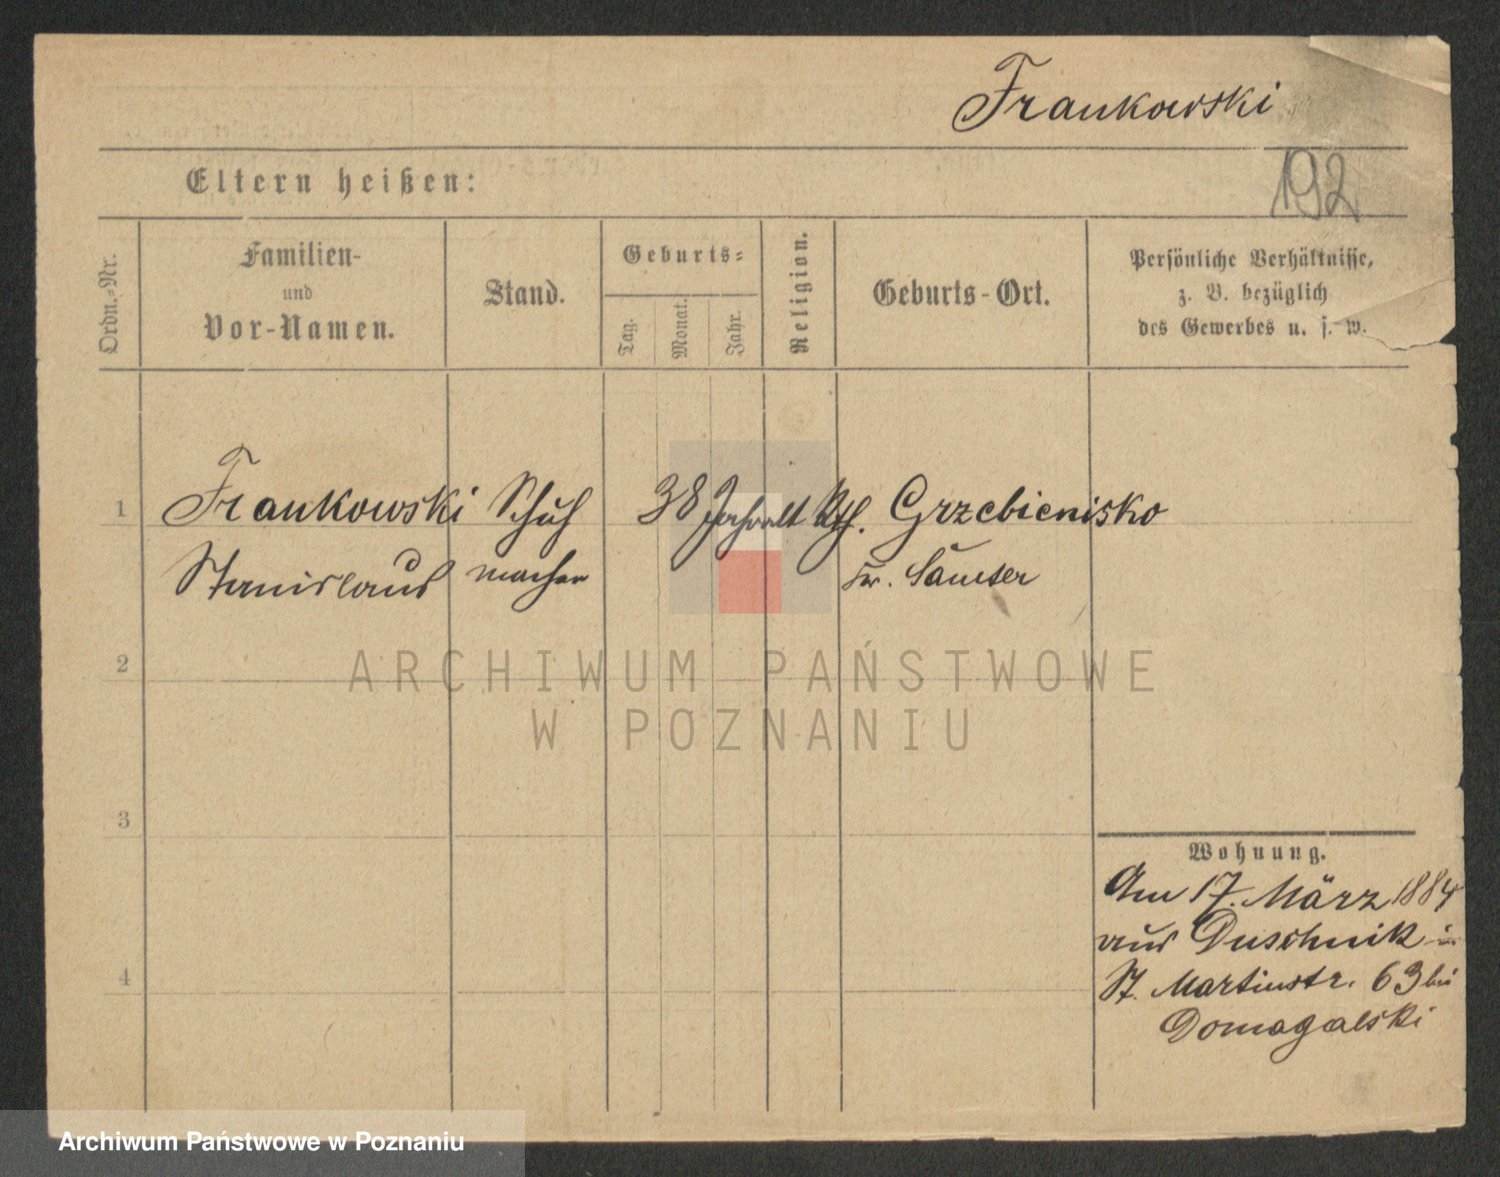 Frankowski
192
Eltern heißen:
Ordn.-Nr.
Familien-
und
Vor-Namen.
Stand.
Geburts-
Tag.
Monat.
Jahr.
Religion.
Geburts-Ort.
Persönliche Verhältnisse,
z. B. bezüglich
des Gewerbes u. s. w.
1
Frankowski Schuh 38 Jahr alt Kth. Grzebienisko
Stanislaus macher Kr. Samter
ARCHIWUM PAŃSTWOWE
W POZNANIU
2
3
4
Wohnung.
Am 17. März 1884
aus Duschnik in
St. Martinstr. 63 bei
Domagalski
Archiwum Państwowe w Poznaniu